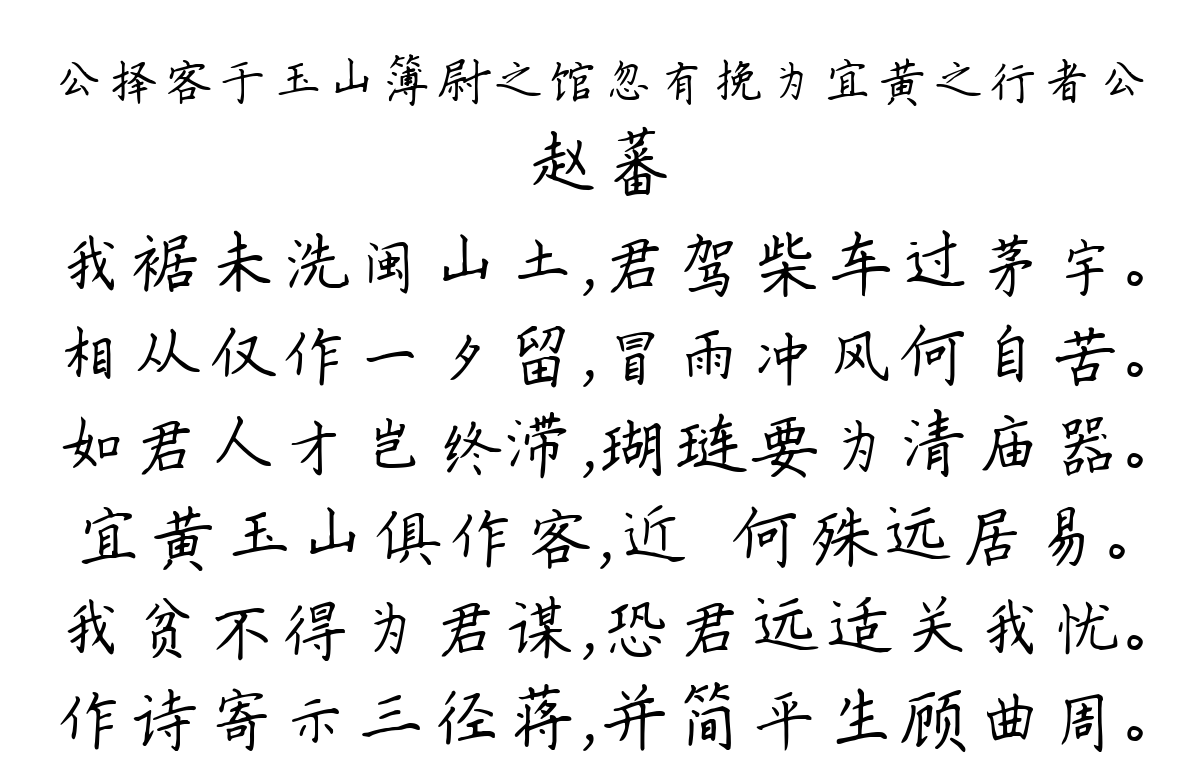 公择客于玉山簿尉之馆忽有挽为宜黄之行者公
赵蕃
我裾未洗闽山土,君驾柴车过茅宇。
相从仅作一夕留,冒雨冲风何自苦。
如君人才岂终滞,瑚琏要为清庙器。
宜黄玉山俱作客,近 何殊远居易。
我贫不得为君谋,恐君远适关我忧。
作诗寄示三径蒋,并简平生顾曲周。